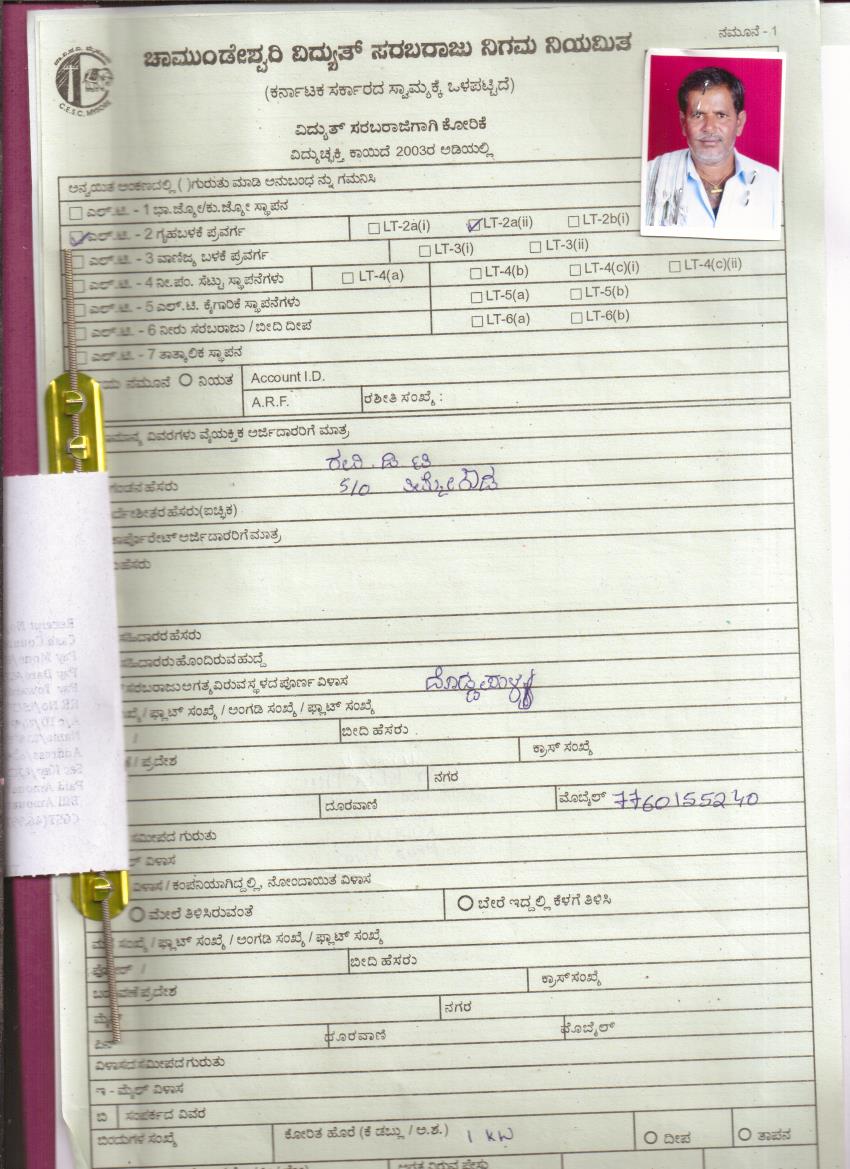 ನಮೂನೆ - 1
C.E.S.C. MYSORE
ಚಾಮುಂಡೇಶ್ವರಿ ವಿದ್ಯುತ್ ಸರಬರಾಜು ನಿಗಮ ನಿಯಮಿತ
(ಕರ್ನಾಟಕ ಸರ್ಕಾರದ ಸ್ವಾಮ್ಯಕ್ಕೆ ಒಳಪಟ್ಟಿದೆ)
ವಿದ್ಯುತ್ ಸರಬರಾಜಿಗಾಗಿ ಕೋರಿಕೆ
ವಿದ್ಯುಚ್ಛಕ್ತಿ ಕಾಯಿದೆ 2003ರ ಅಡಿಯಲ್ಲಿ
ಅನ್ವಯಿತ ಅಂಕಣದಲ್ಲಿ ( )ಗುರುತು ಮಾಡಿ ಅನುಬಂಧ ನ್ನು ಗಮನಿಸಿ
ಎಲ್.ಟಿ. - 1 ಭಾ.ಜ್ಯೋ/ಕು.ಜ್ಯೋ ಸ್ಥಾಪನ
ಎಲ್.ಟಿ. - 2 ಗೃಹಬಳಕೆ ಪ್ರವರ್ಗ LT-2a(i) LT-2a(ii) LT-2b(i)
ಎಲ್.ಟಿ. - 3 ವಾಣಿಜ್ಯ ಬಳಕೆ ಪ್ರವರ್ಗ LT-3(i) LT-3(ii)
ಎಲ್.ಟಿ. - 4 ನೀ.ಪಂ. ಸೆಟ್ಟು ಸ್ಥಾಪನೆಗಳು LT-4(a) LT-4(b) LT-4(c)(i) LT-4(c)(ii)
ಎಲ್.ಟಿ. - 5 ಎಲ್.ಟಿ. ಕೈಗಾರಿಕೆ ಸ್ಥಾಪನೆಗಳು LT-5(a) LT-5(b)
ಎಲ್.ಟಿ. - 6 ನೀರು ಸರಬರಾಜು / ಬೀದಿ ದೀಪ LT-6(a) LT-6(b)
ಎಲ್.ಟಿ. - 7 ತಾತ್ಕಾಲಿಕ ಸ್ಥಾಪನ
ನಮೂನೆ ನಿಯತ Account I.D.
A.R.F. ರಶೀತಿ ಸಂಖ್ಯೆ :
ವಿವರಗಳು ವೈಯಕ್ತಿಕ ಅರ್ಜಿದಾರರಿಗೆ ಮಾತ್ರ
ರವಿ . ಡಿ ಟಿ
ಹೆಸರು S/o ತಿಮ್ಮೇಗೌಡ
ಹೆಸರು(ಐಚ್ಛಿಕ)
ಅರ್ಜಿದಾರರಿಗೆ ಮಾತ್ರ
ಹೆಸರು
ಸಹಿದಾರರ ಹೆಸರು
ಸಹಿದಾರರು ಹೊಂದಿರುವ ಹುದ್ದೆ
ಸರಬರಾಜು ಅಗತ್ಯವಿರುವ ಸ್ಥಳದ ಪೂರ್ಣ ವಿಳಾಸ ದೊಡ್ಡಪಾಳ್ಯ
/ ಫ್ಲಾಟ್ ಸಂಖ್ಯೆ / ಅಂಗಡಿ ಸಂಖ್ಯೆ / ಫ್ಲಾಟ್ ಸಂಖ್ಯೆ
/ ಬೀದಿ ಹೆಸರು .
/ ಪ್ರದೇಶ ಕ್ರಾಸ್ ಸಂಖ್ಯೆ
ನಗರ
ದೂರವಾಣಿ ಮೊಬೈಲ್ 7760155240
ಸಮೀಪದ ಗುರುತು
ವಿಳಾಸ
ವಿಳಾಸ / ಕಂಪನಿಯಾಗಿದ್ದಲ್ಲಿ, ನೋಂದಾಯಿತ ವಿಳಾಸ
ಮೇಲೆ ತಿಳಿಸಿರುವಂತೆ ಬೇರೆ ಇದ್ದಲ್ಲಿ ಕೆಳಗೆ ತಿಳಿಸಿ
ಸಂಖ್ಯೆ / ಫ್ಲಾಟ್ ಸಂಖ್ಯೆ / ಅಂಗಡಿ ಸಂಖ್ಯೆ / ಫ್ಲಾಟ್ ಸಂಖ್ಯೆ
/ ಬೀದಿ ಹೆಸರು
ಪ್ರದೇಶ ಕ್ರಾಸ್ ಸಂಖ್ಯೆ
ನಗರ
ದೂರವಾಣಿ ಮೊಬೈಲ್
ವಿಳಾಸದ ಸಮೀಪದ ಗುರುತು
ಇ - ಮೈಲ್ ವಿಳಾಸ
ಬಿ ಸಂಪರ್ಕದ ವಿವರ
ಸಂಖ್ಯೆ ಕೋರಿತ ಹೊರೆ (ಕೆ ಡಬ್ಲು / ಅ.ಶ.) 1 KW ದೀಪ ತಾಪನ